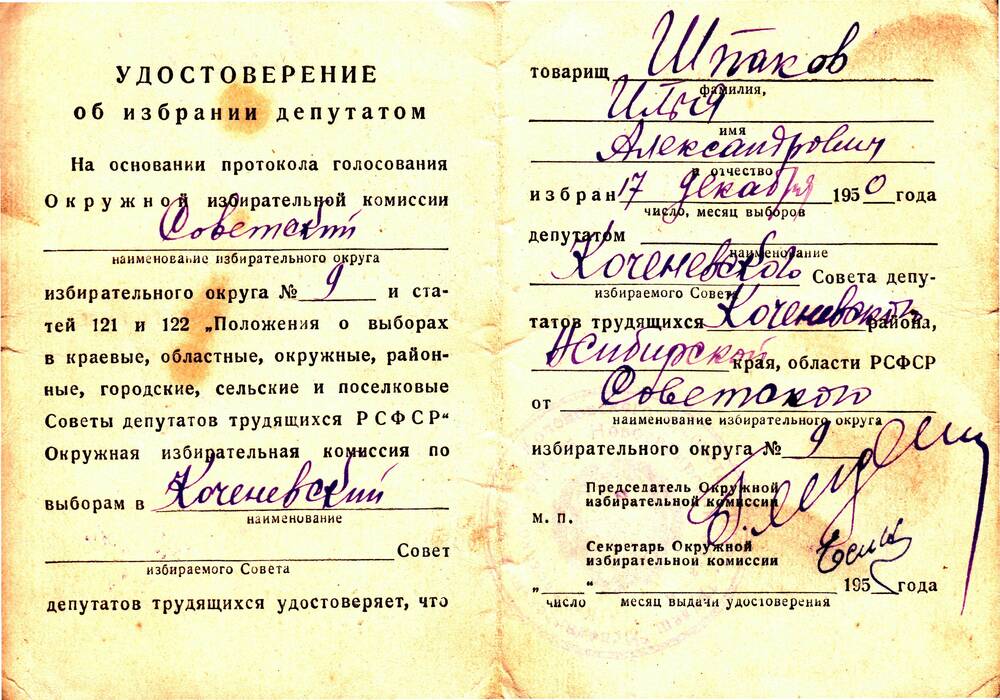 УДОСТОВЕРЕНИЕ
об избрании депутатом
На основании протокола голосования
Окружной избирательной комиссии
Советский
наименование избирательного округа
избирательного округа № 9 и ста-
тей 121 и 122 „Положения о выборах
в краевые, областные, окружные, район-
ные, городские, сельские и поселковые
Советы депутатов трудящихся РСФСР“
Окружная избирательная комиссия по
выборам в Коченевский
наименование
Совет
избираемого Совета
депутатов трудящихся удостоверяет, что
товарищ Шпаков
фамилия,
Илья
имя
Александрович
и отчество
избран 17 декабря 1950 года
число, месяц выборов
депутатом
наименование
Коченевского Совета депу-
избираемого Совета
татов трудящихся Коченевского района,
Нсибирской края, области РСФСР
от Советского
наименование избирательного округа
избирательного округа № 9
Председатель Окружной
избирательной комиссии
М. П.
Секретарь Окружной
избирательной комиссии
„ “ 195 года
число месяц выдачи удостоверения